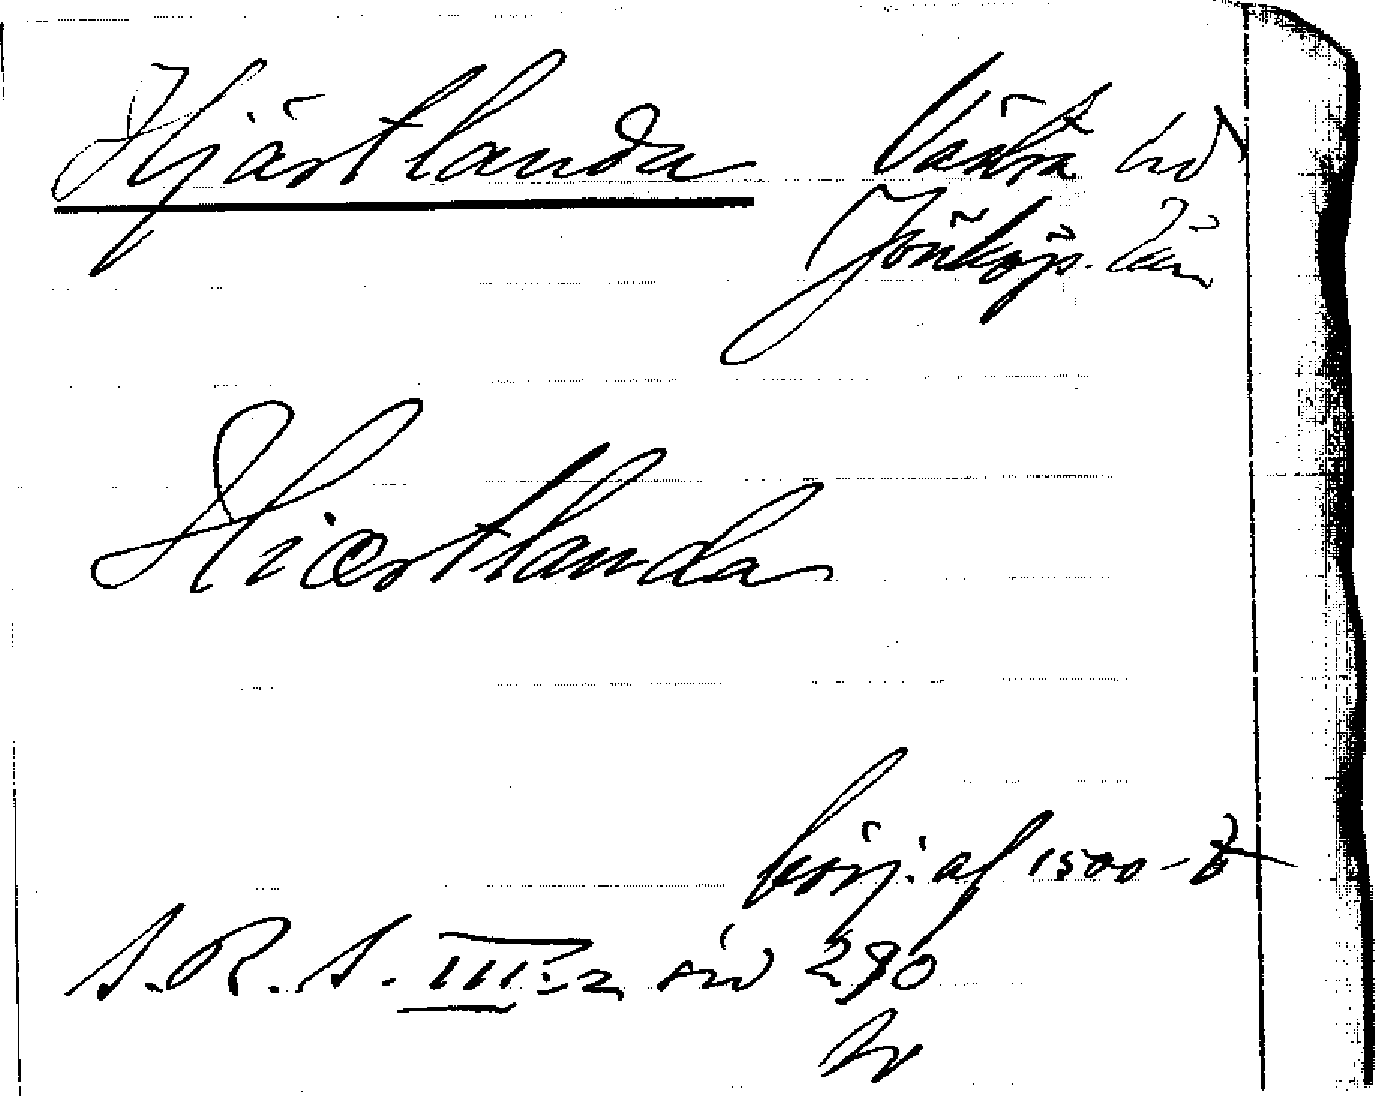 Hjärtlanda Västra hd
Jönköp. län
Hiærtlanda
börj. af 1500-t
S.R.S. III:2 sid 290